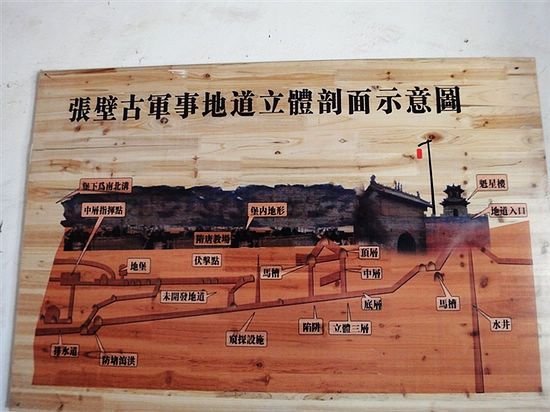 張壁古軍事地道立體剖面示意圖
堡下爲南北溝
中層指揮點
堡内地形
魁星樓
地道入口
隋唐教場
伏擊點
地堡
馬槽
頂層
中層
未開發地道
底層
馬槽
陷阱
立體三層
窺探設施
水井
排水道
防堵瀉洪